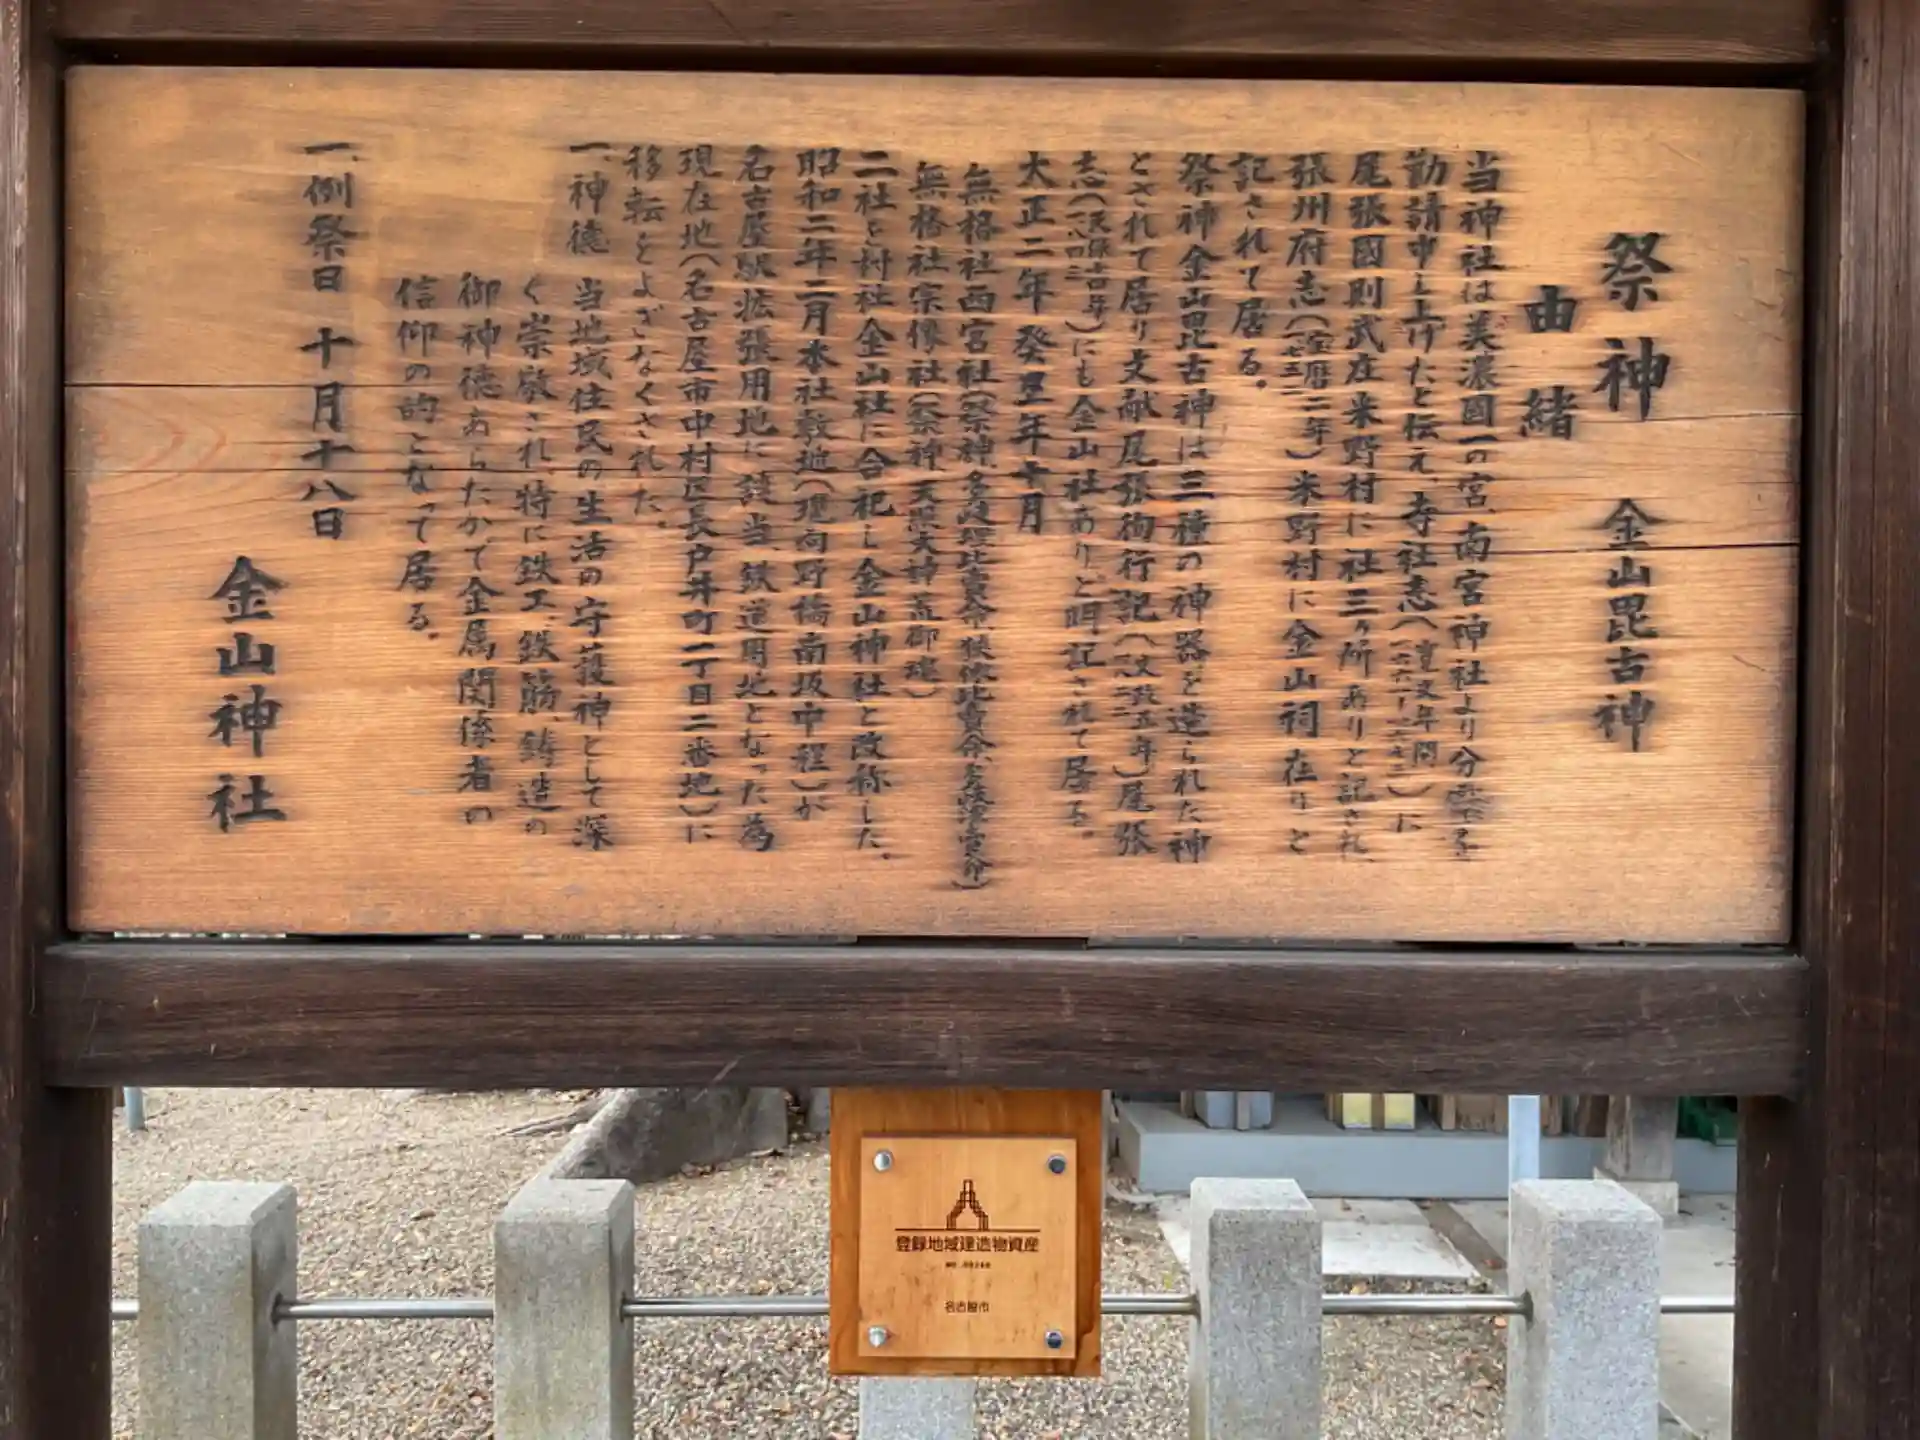 祭神 金山毘古神
由緒
当神社は美濃國一の宮、南宮神社より分霊を
勧請申し上げたと伝え、寺社志(寛文年間一六六一-一六七三)に
尾張國則武庄米野村に社三ヶ所ありと記され、
張州府志(宝暦二年)米野村に金山祠在りと
記されて居る。
祭神金山毘古神は三種の神器を造られた神
とされて居り文献尾張徇行記(文政五年)尾張
志(天保十古年)にも金山社ありと明記されて居る。
大正二年癸丑年十月
無格社西宮社(祭神、多岐理比賣命、狭依比賣命、多岐津比賣命)
無格社宗像社(祭神、天照大神荒御魂)
二社を村社金山社に合祀し金山神社と改称した。
昭和二年二月本社敷地(現向野橋南坂中程)が
名古屋駅拡張用地に該当、鉄道用地となった為
現在地(名古屋市中村区長戸井町一丁目二番地)に
移転をよぎなくされた。
一、神徳 当地域住民の生活の守護神として深
く崇敬され、特に鉄工、鉄筋、鋳造の
御神徳あらたかで金属関係者の
信仰の的となって居る。
一、例祭日 十月十八日
金山神社
登録地域建造物資産
名古屋市